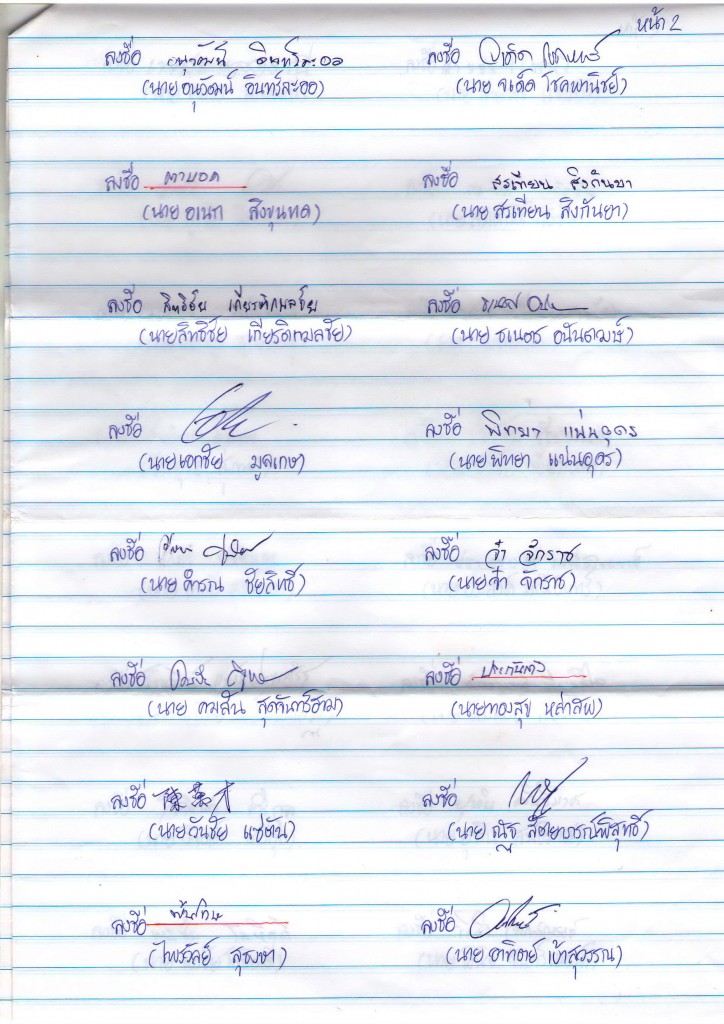 หน้า 2
ลงชื่อ อนุวัฒน์ อินทร์ละออ ลงชื่อ
(นายอนุวัฒน์ อินทร์ละออ) (นาย จเด็ด โชคพานิชย์)
ลงชื่อ ตาบอด ลงชื่อ สรเทียน สิงกันยา
(นายอเนก สิงขุนทด) (นายสรเทียน สิงกันยา)
ลงชื่อ สิทธิชัย เกียรติกมลชัย ลงชื่อ
(นายสิทธิชัย เกียรติกมลชัย) (นาย ธเนตร อนันตวงษ์)
ลงชื่อ ลงชื่อ พิทยา แน่นอุดร
(นายเอกชัย มูลเกษ) (นายพิทยา แน่นอุดร)
ลงชื่อ ลงชื่อ จ๋า จักราช
(นายดำรณ ชัยสิทธิ์) (นายจ๋า จักราช)
ลงชื่อ ลงชื่อ
(นาย คมสัน สุดจันทร์ฮาม) (นายทองสุข หล่าสิพ)
ลงชื่อ ลงชื่อ
(นายวันชัย แซ่ตัน) (นาย ณัฐ)
ลงชื่อ พ้นโทษ ลงชื่อ
(ไพรวัลย์) (นาย อาทิตย์ เบ้าสุวรรณ)